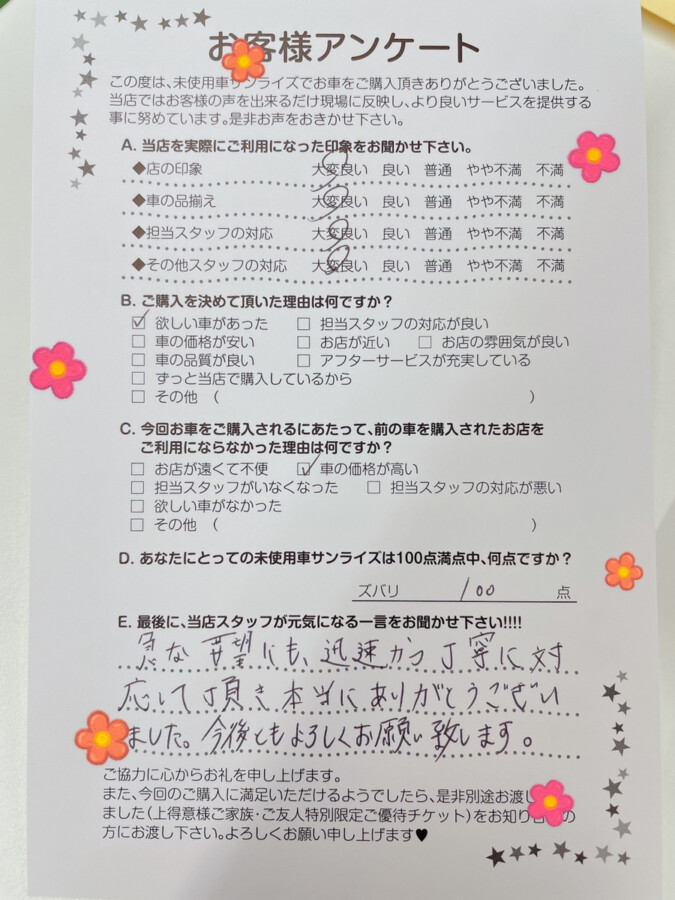 お客様アンケート
この度は、未使用車サンライズでお車をご購入頂きありがとうございました。
当店ではお客様の声を出来るだけ現場に反映し、より良いサービスを提供する
事に努めています。是非お声をおきかせ下さい。
A. 当店を実際にご利用になった印象をお聞かせ下さい。
◆店の印象 大変良い 良い 普通 やや不満 不満
◆車の品揃え 大変良い 良い 普通 やや不満 不満
◆担当スタッフの対応 大変良い 良い 普通 やや不満 不満
◆その他スタッフの対応 大変良い 良い 普通 やや不満 不満
B. ご購入を決めて頂いた理由は何ですか？
☑ 欲しい車があった □ 担当スタッフの対応が良い
□ 車の価格が安い □ お店が近い □ お店の雰囲気が良い
□ 車の品質が良い □ アフターサービスが充実している
□ ずっと当店で購入しているから
□ その他 （ ）
C. 今回お車をご購入されるにあたって、前の車を購入されたお店を
ご利用にならなかった理由は何ですか？
□ お店が遠くて不便 ☑ 車の価格が高い
□ 担当スタッフがいなくなった □ 担当スタッフの対応が悪い
□ 欲しい車がなかった
□ その他 （ ）
D. あなたにとっての未使用車サンライズは100点満点中、何点ですか？
ズバリ 100 点
E. 最後に、当店スタッフが元気になる一言をお聞かせ下さい!!!!
急な要望にも、迅速かつ丁寧に対
応して頂き本当にありがとうござい
ました。今後ともよろしくお願い致します。
ご協力に心からお礼を申し上げます。
また、今回のご購入に満足いただけるようでしたら、是非別途お渡し
ました（上得意様ご家族・ご友人特別限定ご優待チケット）をお知り の
方にお渡し下さい。よろしくお願い申し上げます♥